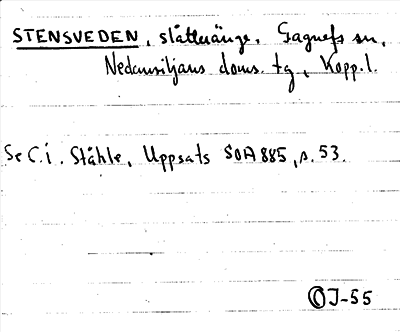 STENSVEDEN, slåtteränge. Gagnefs sn,
Nedansiljans doms. tg, Kopp. l.
Se C. i. Ståhle, Uppsats SOA 885, s. 53.
OJ-55